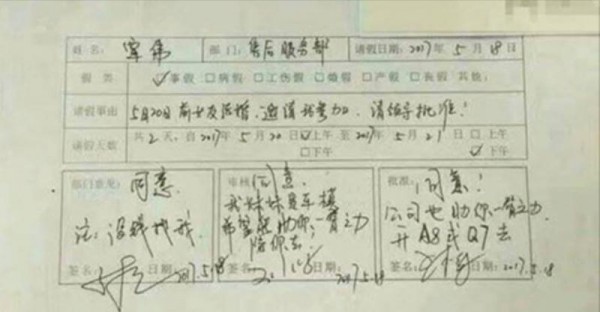 姓名：宁伟 部门：售后服务部 请假日期：2017年5月18日
假类 ☑事假 □病假 □工伤假 □婚假 □产假 □丧假 其他：
请假事由 5月20日前女友结婚，邀请我参加，请领导批准！
请假天数 共2天，自2017年5月20日☑上午 至2017年5月21日□上午
□下午 ☑下午
部门意见：同意
注：没钱找我
签名： 日期：2017.5.18
审核：同意
我妹妹是车模
希望能助你一臂之力
陪你去！
签名： 日期：2017.5.18
批准：同意！
公司也助你一臂之力
开A8或Q7去
签名： 日期：2017.5.18